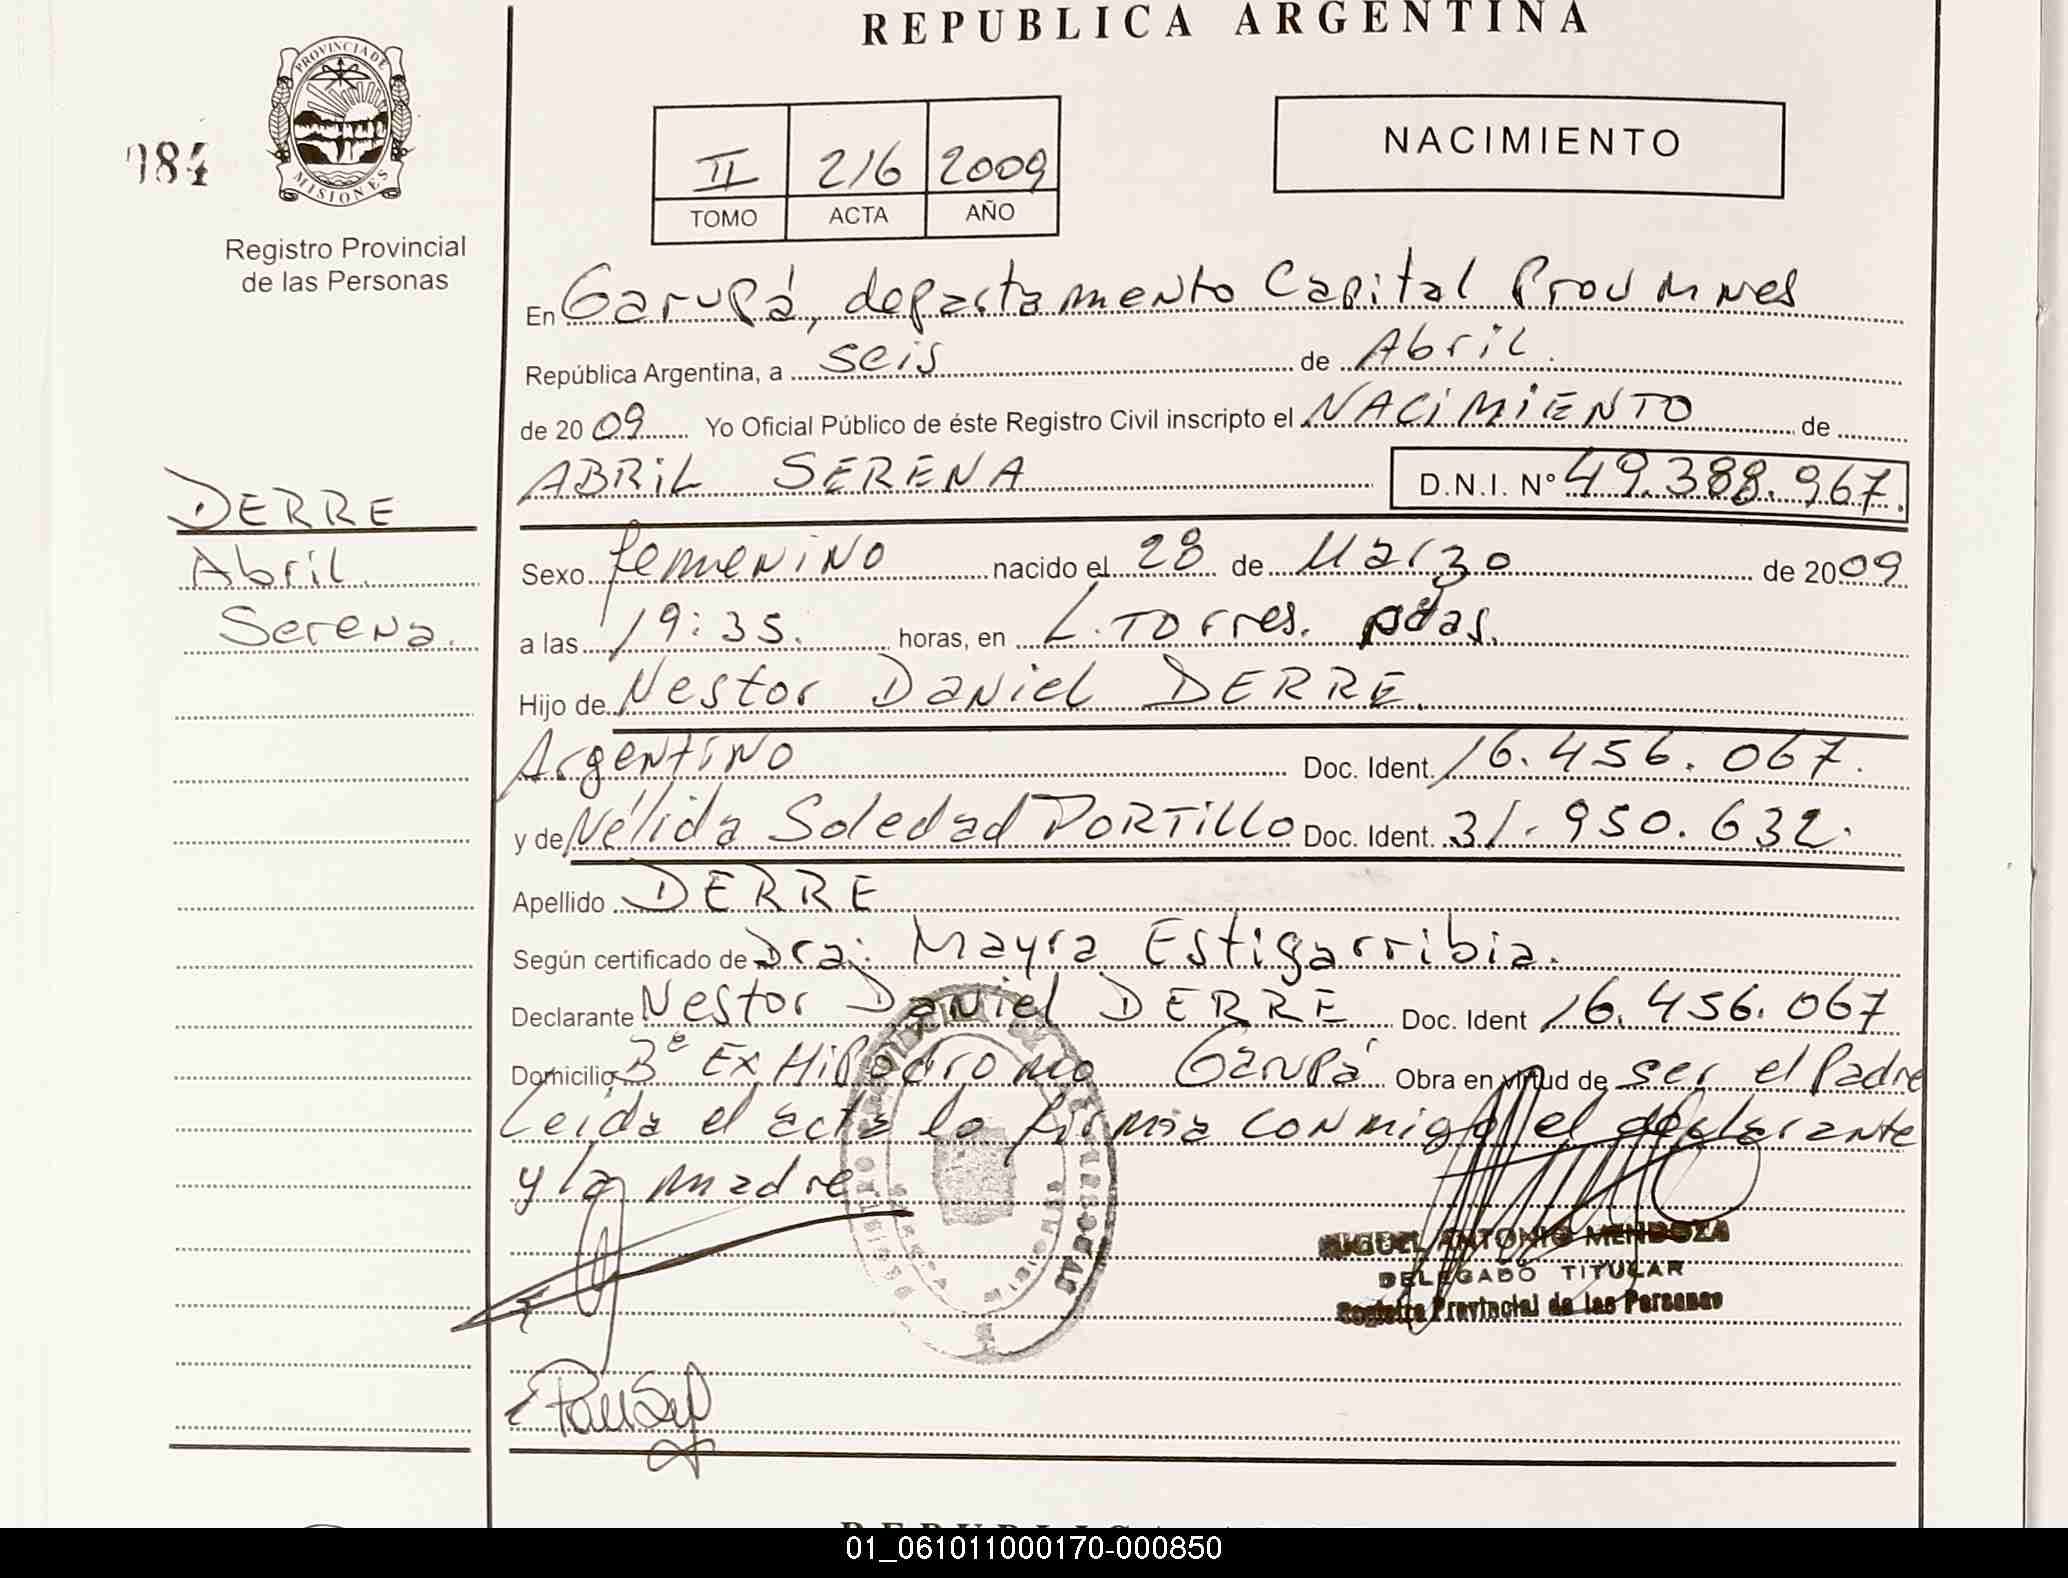 REPUBLICA ARGENTINA
PROVINCIA DE
MISIONES
184
Registro Provincial
de las Personas
NACIMIENTO
II 216 2009
TOMO ACTA AÑO
En Garupá, departamento Capital Prov Mnes
República Argentina, a seis de Abril.
de 2009 Yo Oficial Público de éste Registro Civil inscripto el NACIMIENTO de
ABRIL SERENA D.N.I. N° 49.388.967.
DERRE
Abril
Serena.
Sexo femenino nacido el 28 de Marzo de 2009
a las 19:35. horas, en L. Torres. pdas.
Hijo de Nestor Daniel DERRE.
Argentino Doc. Ident. 16.456.067.
y de Nélida Soledad PORTILLO Doc. Ident. 31.950.632.
Apellido DERRE
Según certificado de Dra: Mayra Estigarribia.
Declarante Nestor Daniel DERRE Doc. Ident 16.456.067
Domicilio B° Ex Hipodromo Garupá Obra en virtud de ser el Padre
Leida el acta la firma conmigo el declarante
y la madre
MIGUEL ANTONIO MENDOZA
DELEGADO TITULAR
Registro Provincial de las Personas
01_061011000170-000850